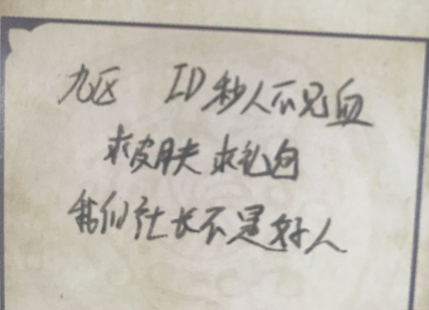 九区 ID秒人不见血
求皮肤 求礼包
我们社长不是好人